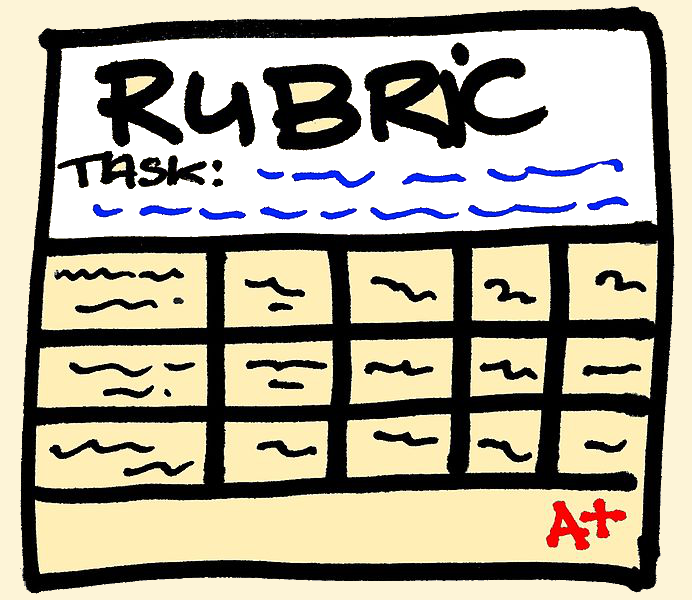 RUBRiC
TASK:
A+